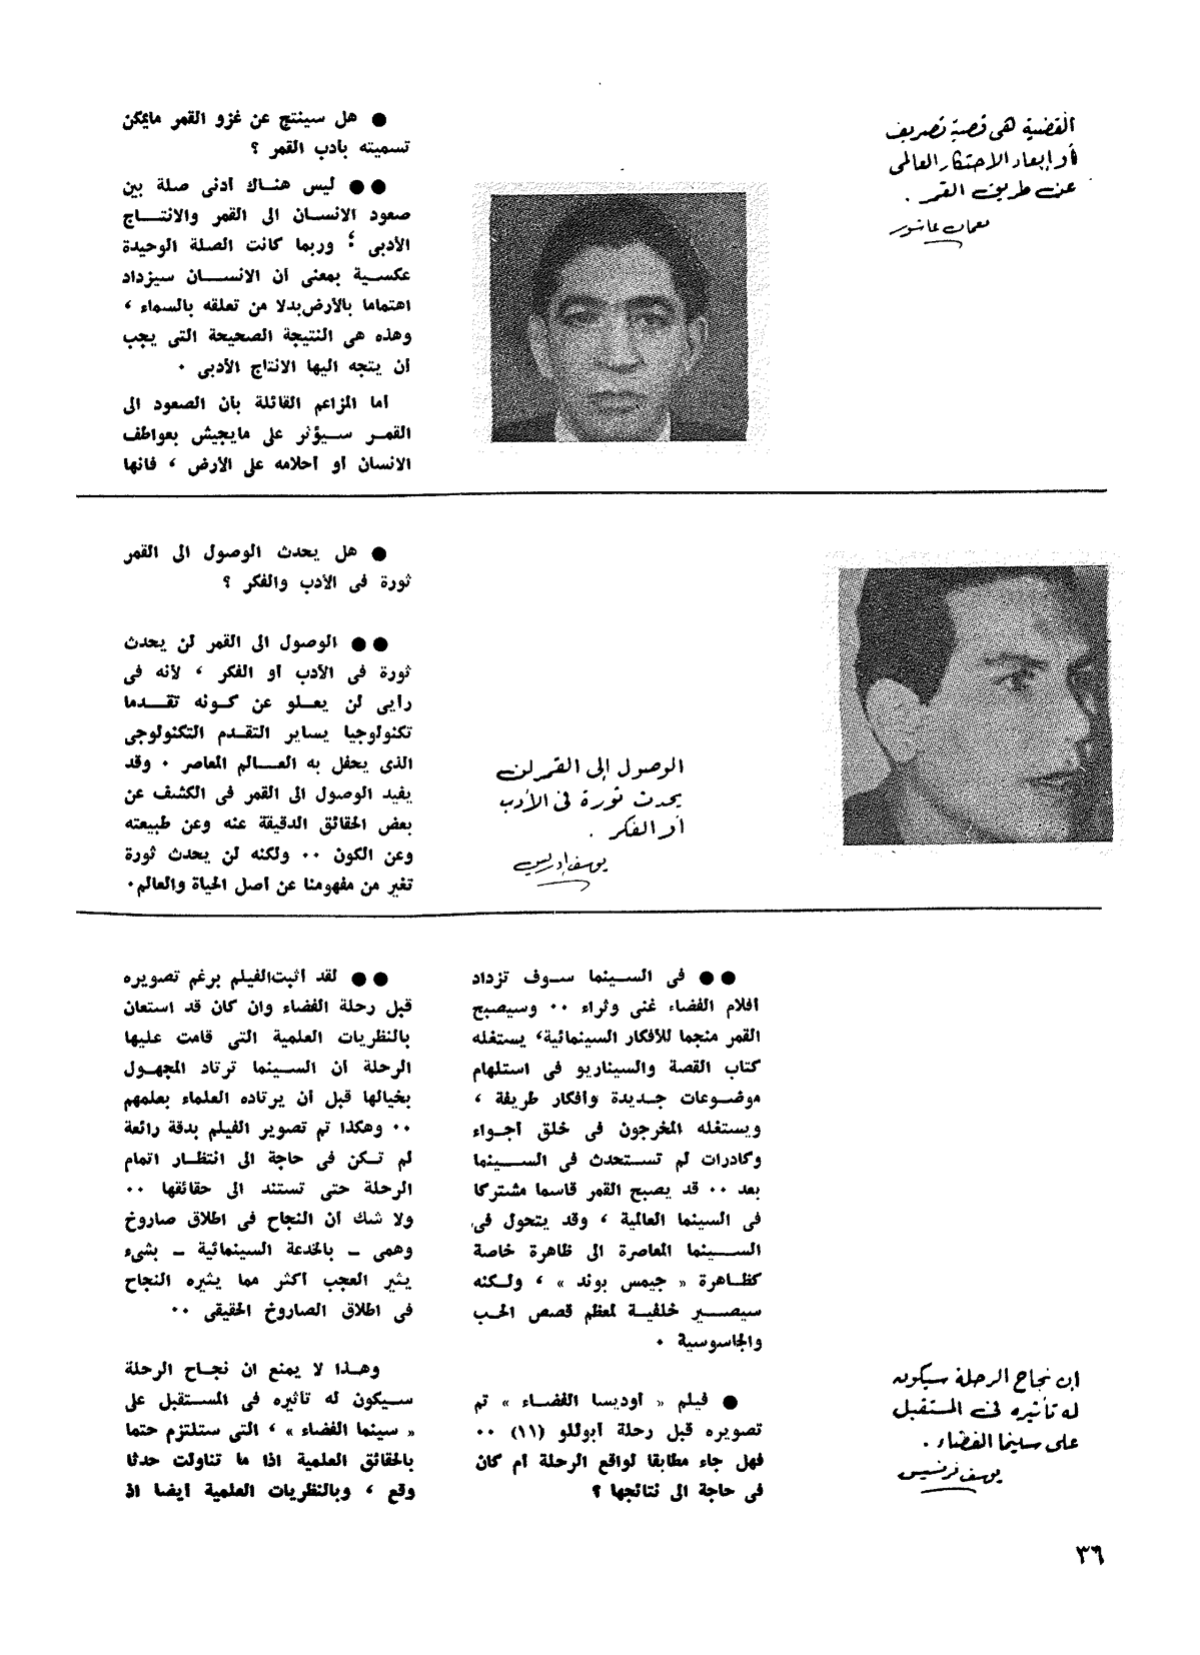 القضية هى قصية تصريف
أو إبعاد الاحتكار العالمى
عن طريق القمر .
نعمان عاشور
● هل سينتج عن غزو القمر مايمكن
تسميته بأدب القمر ؟
●● ليس هنـاك أدنى صلة بين
صعود الانسـان الى القمر والانتـــاج
الأدبى ؛ وربما كانت الصلة الوحيدة
عكسـية بمعنى أن الانســـان سيزداد
اهتماما بالأرض بدلا من تعلقه بالسماء ،
وهذه هى النتيجة الصحيحة التى يجب
أن يتجه اليها الانتاج الأدبى .
أما المزاعم القائلة بأن الصعود الى
القمـر سـيؤثر على مايجيش بعواطف
الانسان أو أحلامه على الأرض ، فانها
● هل يحدث الوصول الى القمر
ثورة فى الأدب والفكر ؟
●● الوصول الى القمر لن يحدث
ثورة فى الأدب أو الفكر ، لأنه فى
رأيى لن يعـلو عن كـونه تقـــدما
تكنولوجيا يساير التقـدم التكنولوجى
الذى يحفل به العـــالم المعاصر . وقد
يفيد الوصول الى القمر فى الكشف عن
بعض الحقائق الدقيقة عنه وعن طبيعته
وعن الكون .. ولكنه لن يحدث ثورة
تغير من مفهومنا عن أصل الحياة والعالم .
الوصول إلى القمر لن
يحدث ثورة فى الأدب
أو الفكر .
يوسف إدريس
●● فى السـينما سـوف تزداد
أفلام الفضاء غنى وثراء .. وسيصبح
القمر منجما للأفكار السينمائية، يستغله
كتاب القصة والسيناريو فى استلهام
موضـوعات جـديدة وأفكار طريفة ،
ويستغله المخرجون فى خلق أجـواء
وكادرات لم تسـتحدث فى الســـينما
بعد .. قد يصبح القمر قاسما مشتركا
فى السينما العالمية ، وقد يتحول فى
الســـينما المعاصرة الى ظاهرة خاصة
كظـاهرة « جيمس بوند » ، ولـكنه
سيصــير خلفيـة لمعظم قصص الحـب
والجاسوسية .
● فيلم « أوديسا الفضـاء » تم
تصويره قبل رحلة أبوللو (١١) ..
فهل جاء مطابقا لواقع الرحلة أم كان
فى حاجة الى نتائجها ؟
●● لقد أثبت الفيلم برغم تصويره
قبل رحلة الفضاء وان كان قد استعان
بالنظريات العلمية التى قامت عليها
الرحلة أن السـينما ترتاد المجهـول
بخيالها قبل أن يرتاده العلماء بعلمهم
.. وهكذا تم تصوير الفيلم بدقة رائعة
لم تـكن فى حاجة الى انتظـار اتمام
الرحلة حتى تستند الى حقائقها ..
ولا شك أن النجاح فى اطلاق صاروخ
وهمى ــ بالخدعة السينمائية ــ بشىء
يثير العجب أكثر مما يثيره النجاح
فى اطلاق الصاروخ الحقيقى ..
وهـذا لا يمنع أن نجـاح الرحلة
سـيكون له تأثيره فى المسـتقبل على
« سينما الفضاء » ، التى ستلتزم حتما
بالحقائق العلمية اذا ما تناولت حدثا
وقع ، وبالنظريات العلمية أيضا اذ
إن نجاح الرحلة سيكون
له تأثيره فى المستقبل
على سينما الفضاء .
يوسف فرنسيس
٣٦